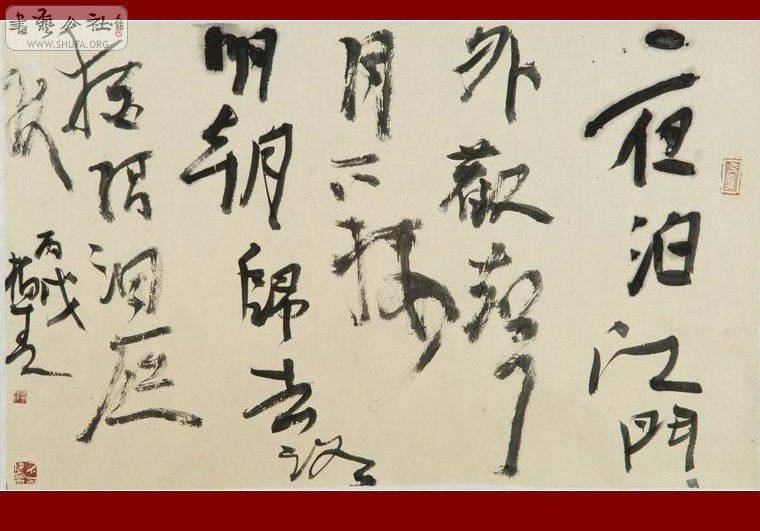 書藝公社
WWW.SHUFA.ORG
夜泊江門
外歡聲
月樓
明朝歸去路
猶隔洞庭
秋
丙戌